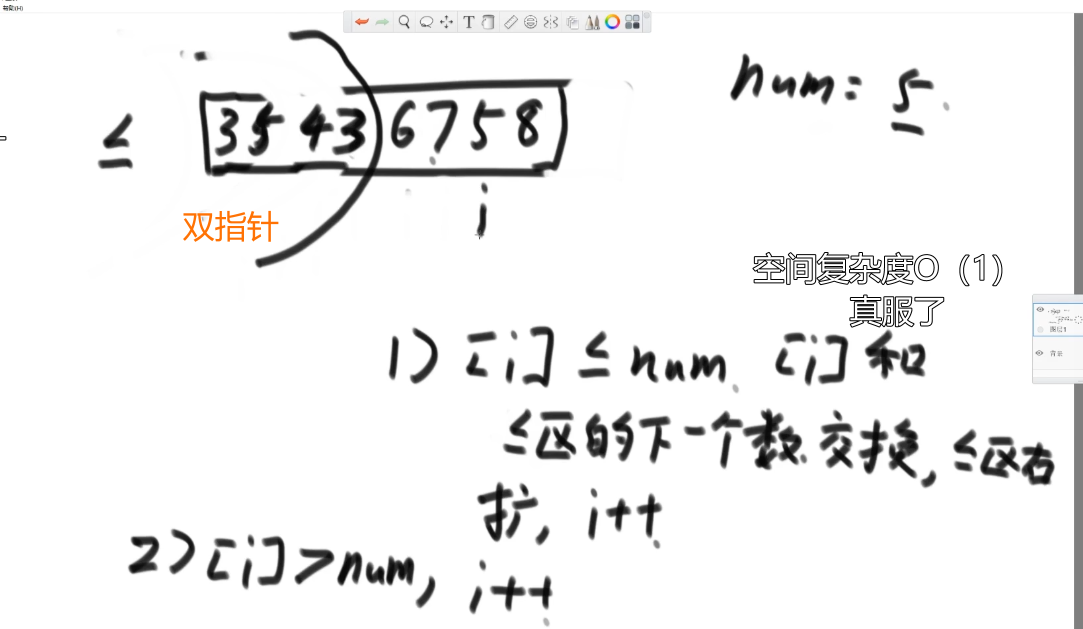 帮助(H)
T
num = 5
≤ 3 5 4 3 6 7 5 8
i
双指针
空间复杂度O（1）
真服了
图层1
背景
1) [i] ≤ num [i] 和
≤区的下一个数交换, ≤区右
扩, i++
2) [i] > num, i++